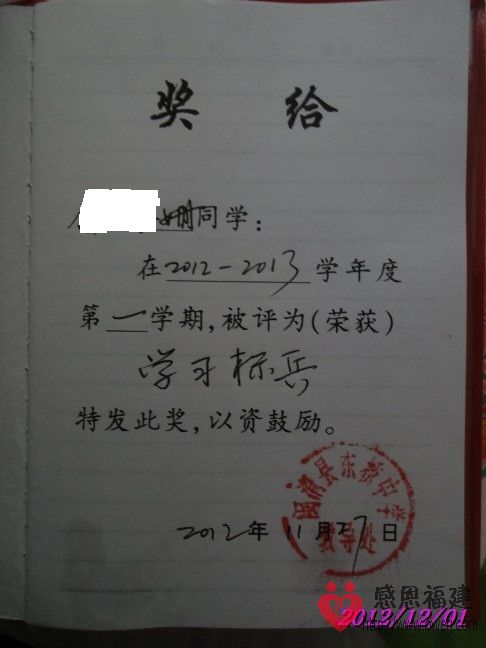 奖 给
姗同学：
在2012-2013学年度
第一学期，被评为（荣获）
学习标兵
特发此奖，以资鼓励。
闽清县东桥中学
教导处
2012年11月27日
感恩福建
2012/12/01